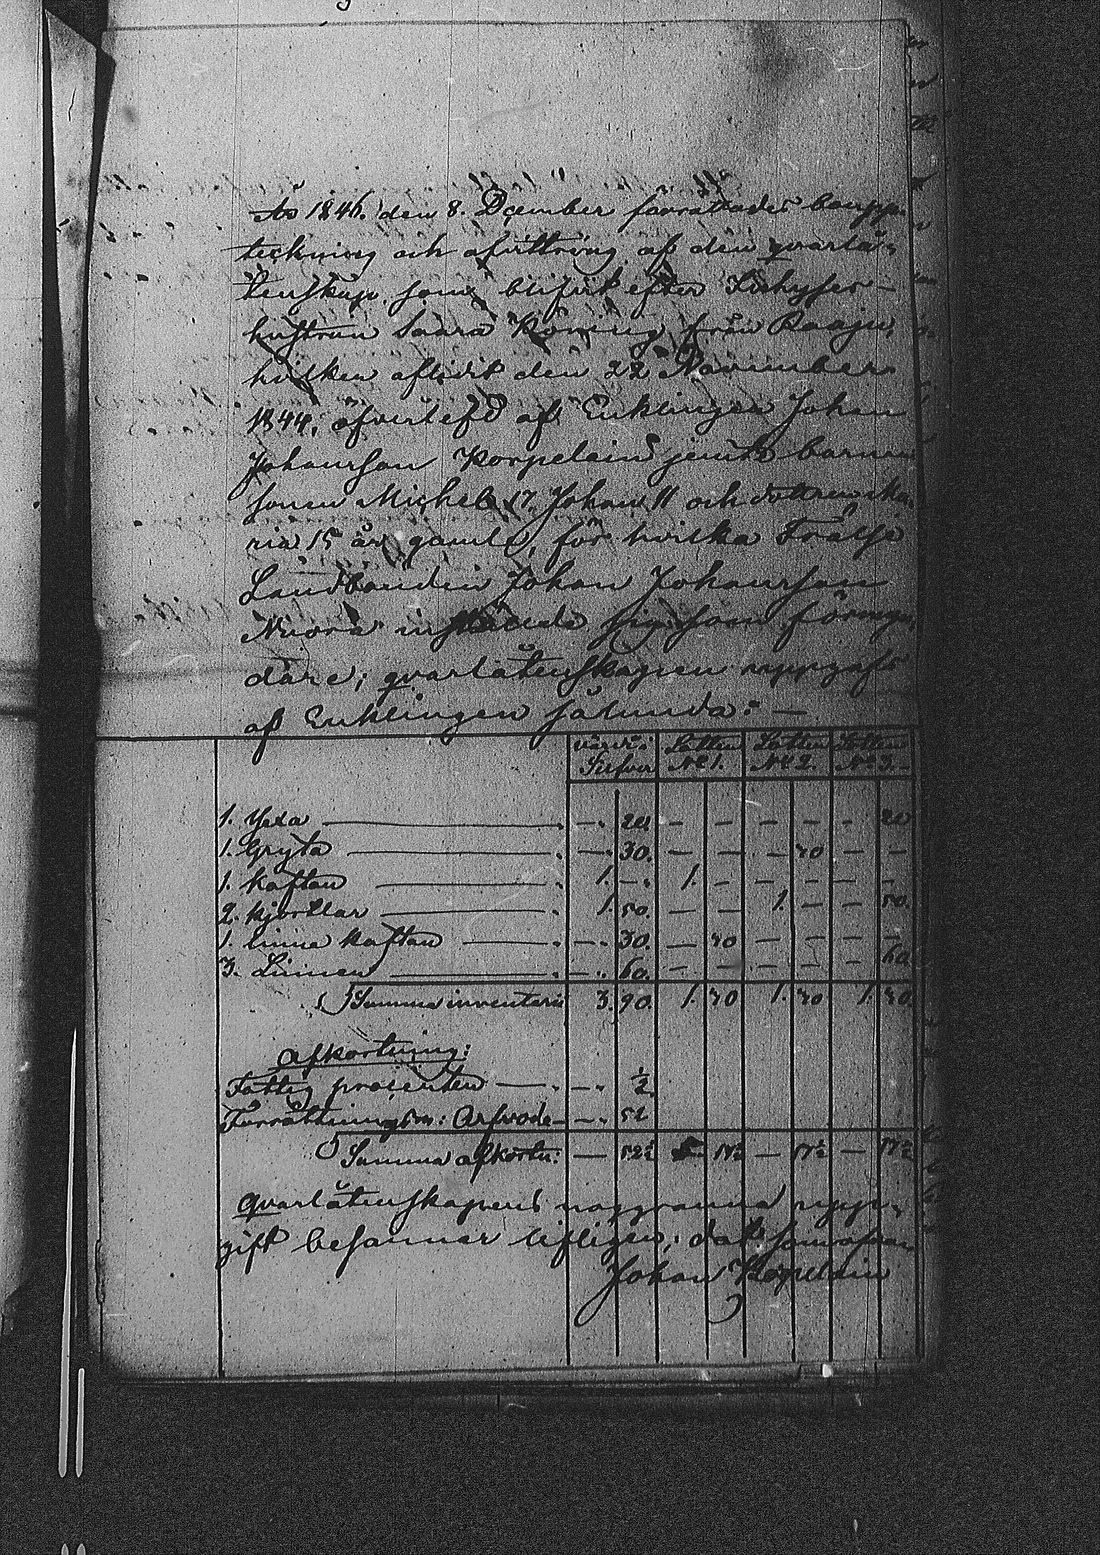 År 1846. den 8. December förrättades bouppe-
teckning och afvittring af den qvarlå-
tenskap, som blifvit efter Inhyses-
hustrun Saara Köning från Raaju,
hvilken aflidit den 22 November
1844, öfverlefd af Enklingen Johan
Johansson Korpelain jemte barnen
sonen Michel 17, Johan 11 och dottren Ma-
ria 15 år gamla, för hvilka Frälse
Landbonden Johan Johansson
Nuora inställde sig som förmyn-
dare; qvarlåtenskapen uppgafs
af Enklingen sålunda: —
Silfver Lotten Nº 1. Lotten Nº 2. Lotten Nº 3.
1. Yxa — 20 — — — — — 20
1. Gryta — 30. — — — 30 — —
1. Kaftan 1. — 1. — — — — —
2. Kjortlar 1. 50. — — 1. — — 50.
1. linne Kaftan — 30. — 30 — — — —
3. Linnen — 60. — — — — — 60
Summa inventarii 3. 90. 1. 30 1. 30. 1. 30.
Afkortning:
Fattig procenten — ½
Förrättningsm: Arfvode — 52
Summa afkortn: — 52½ — 17½ — 17½ — 17½
Qvarlåtenskapens noggranna upp-
gift besannar lifligen; dat som ofvan
Johan Korpelain